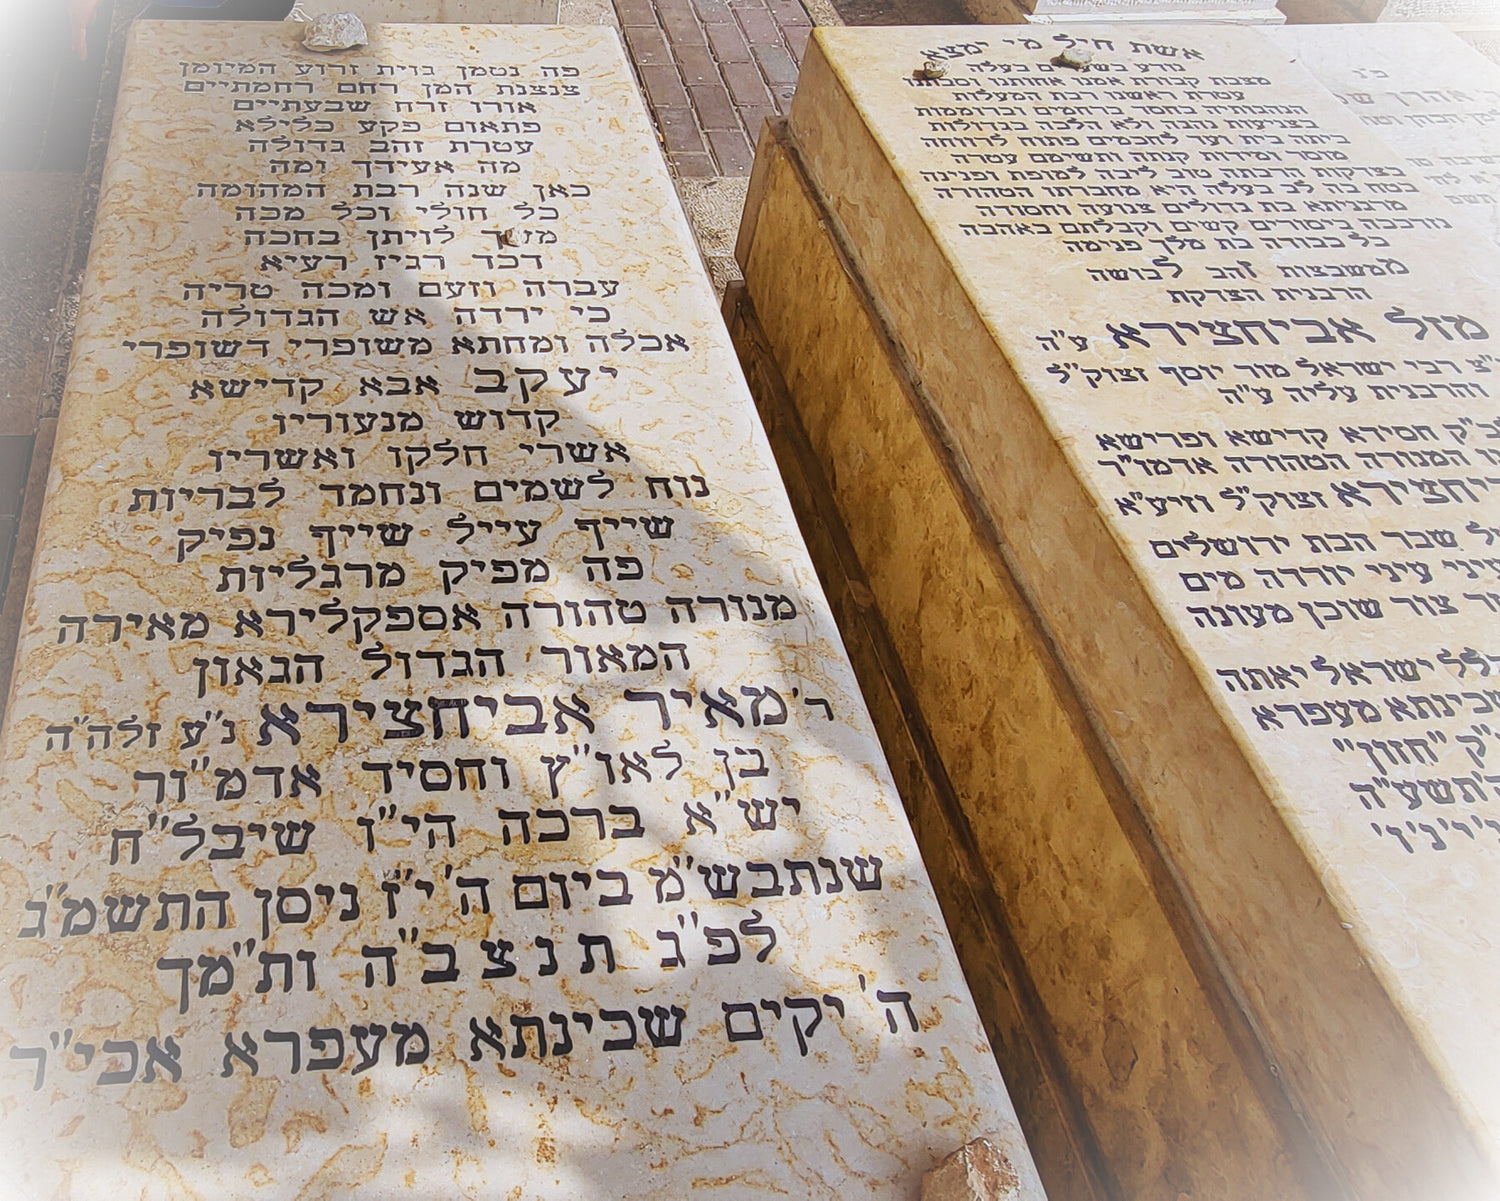 פה נטמן בוית זרוע המיומן
צנצנת המן רחם רחמתיים
אורו זרח שבעתיים
פתאום פקע כלילא
עטרת זהב גדולה
מה אעידך ומה
כאן שנה רבת המהומה
כל חולי וכל מכה
לויתן בחכה
דכד רגיז רעיא
עברה וזעם ומכה טריה
כי ירדה אש הגדולה
אכלה ומחתא משופרי דשופרי
יעקב אבא קדישא
קדוש מנעוריו
אשרי חלקו ואשריו
נוח לשמים ונחמד לבריות
שייף עייל שייף נפיק
פה מפיק מרגליות
מנורה טהורה אספקלירא מאירה
המאור הגדול הגאון
ר' מאיר אביחצירא נ"ע זלה"ה
בן לאו"ץ וחסיד אדמ"ור
יש"א ברכה הי"ו שיבל"ח
שנתבש"מ ביום ה' י"ז ניסן התשמ"ג
לפ"ג ת נ צ ב"ה ות"מך
ה' יקים שכינתא מעפרא אכי"ר
אשת חיל מי ימצא
נודע בשערים בעלה
מצבת קבורת אמנו אחותנו וסבתנו
עטרת ראשנו רבת המעלות
הנהנותיה בחסד ברחמים וברוממות
בצניעות נהגד ולא הלכה בגדולות
ביתה בית ועד לחכמים פתוח לרווחה
מוסר ומידות קנתה ותשימם עטרה
בצדקות הרבתה טוב ליבה למופת ופנינה
בטח בה לב בעלה היא מחברתו הטהורה
מרגניתא בת גדולים צנועה וחסודה
נזדככה ביסודים קשים וקבלתם באהבה
כל כבודה בת מלך פנימה
ממשבצות זהב לבושה
הרבנית הצדקת
מזל אביחצירא ע"ה
רבי ישראל מור יוסף זצוק"ל
והרבנית עליה ע"ה
חסידא קדישא ופרישא
המנורה הטהורה אדמו"ר
זצוק"ל וזיע"א
שבר הבת ירושלים
עיני יורדה מים
צור שוכן מעונה
ישראל יאתה
מעפרא
"חזון"